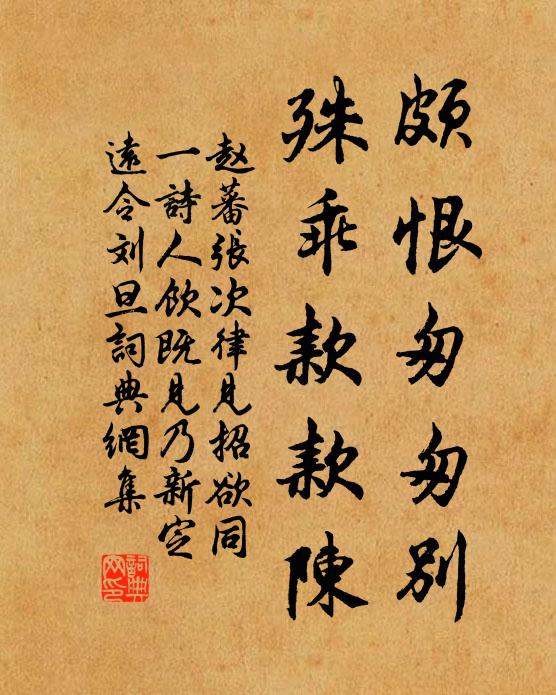 頗恨匆匆別
殊乖款款陳
赵蕃張次律見招欲同
一詩人飲既見乃新定
遠令刘旦詞典網集
詞典网印